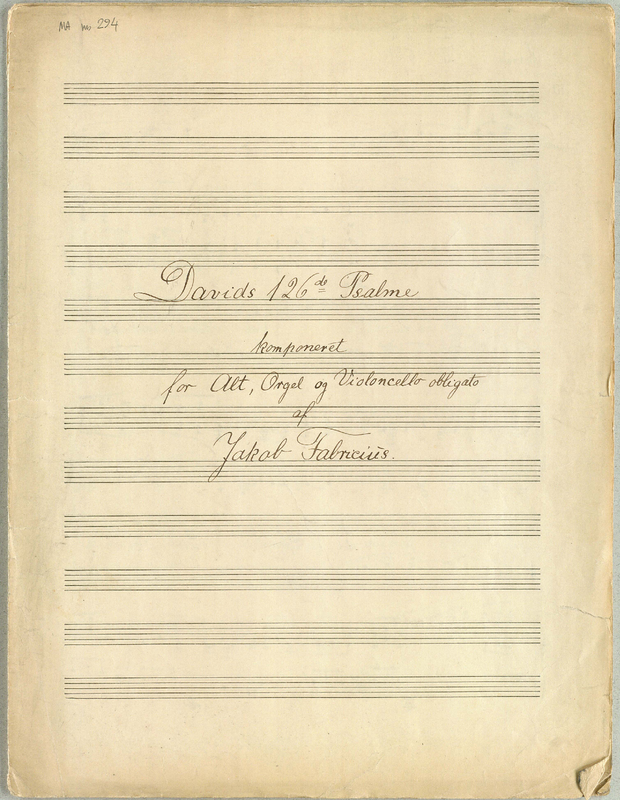 MA no 294
Davids 126de Psalme
komponeret
for Alt, Orgel og Violoncello obligato
af
Jakob Fabricius.